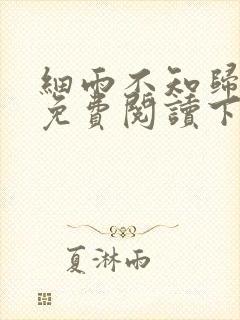 細雨不知歸
免費閱讀下
夏淋雨